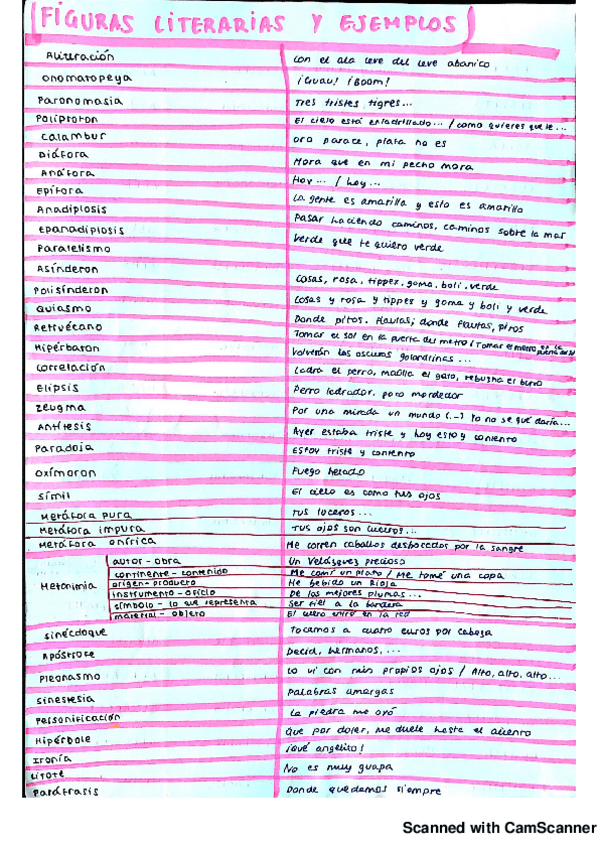 FIGURAS LITERARIAS Y EJEMPLOS
Aliteración con el ala leve del leve abanico
Onomatopeya ¡Guau! ¡Boom!
Paronomasia Tres tristes tigres...
Políptoton El cielo está enladrillado... / como quieres que te...
Calambur oro parece, plata no es
Diáfora Mora que en mi pecho mora
Anáfora Hoy ... / hoy ...
Epífora La gente es amarilla y esto es amarillo
Anadiplosis Pasar haciendo caminos, caminos sobre la mar
Epanadiplosis Verde que te quiero verde
Paralelismo
Asíndeton Cosas, rosa, tippex, goma, boli, verde
Polisíndeton Cosas y rosa y tippex y goma y boli y verde
Quiasmo Donde pitos, flautas; donde flautas, pitos
Retruécano Tomar el sol en la puerta del metro / Tomar el metro en la puerta del sol
Hipérbaton Volverán las oscuras golondrinas ...
Correlación Ladra el perro, maúlla el gato, rebuzna el burro
Elipsis Perro ladrador, poco mordedor
Zeugma Por una mirada un mundo (...) Yo no se qué daría...
Antítesis Ayer estaba triste y hoy estoy contento
Paradoja Estoy triste y contento
Oxímoron Fuego helado
Símil El cielo es como tus ojos
Metáfora pura Tus luceros...
Metáfora impura Tus ojos son luceros...
Metáfora onírica Me corren caballos desbocados por la sangre
Metonimia
autor - obra Un Velásquez precioso
continente - contenido Me comí un plato / Me tomé una copa
origen - producto He bebido un Rioja
instrumento - oficio De las mejores plumas...
símbolo - lo que representa Ser fiel a la bandera
material - objeto El cuero entró en la red
Sinécdoque Tocamos a cuatro euros por cabeza
Apóstrofe Decid, hermanos, ...
Pleonasmo Lo vi con mis propios ojos / Alto, alto, alto...
Sinestesia Palabras amargas
Personificación La piedra me oyó
Hipérbole Que por doler, me duele hasta el aliento
Ironía ¡Qué angelito!
Litote No es muy guapa
Paráfrasis Donde quedamos siempre
Scanned with CamScanner